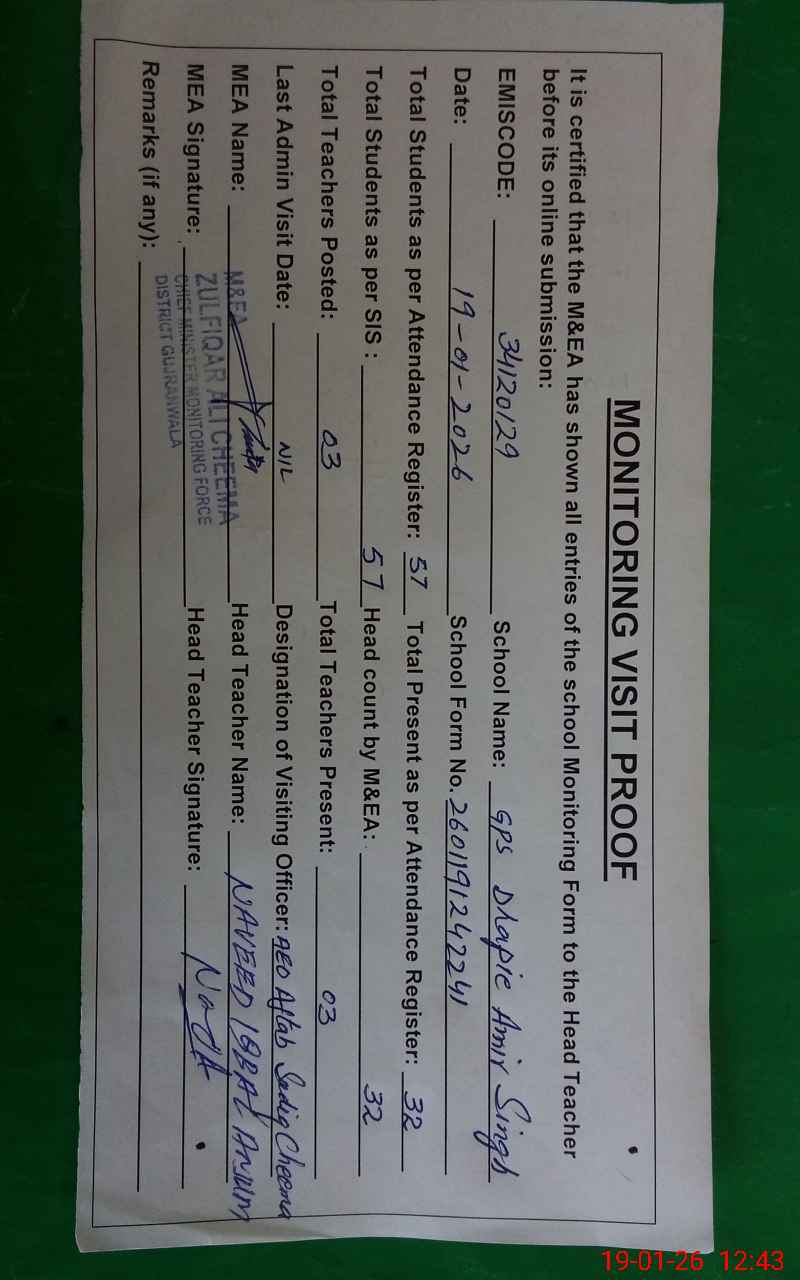 MONITORING VISIT PROOF
It is certified that the M&EA has shown all entries of the school Monitoring Form to the Head Teacher
before its online submission:
EMISCODE: 34120129 School Name: GPS Dhapie Amir Singh
Date: 19-01-2026 School Form No. 2601191242241
Total Students as per Attendance Register: 57 Total Present as per Attendance Register: 32
Total Students as per SIS : 57 Head count by M&EA: 32
Total Teachers Posted: 03 Total Teachers Present: 03
Last Admin Visit Date: NIL Designation of Visiting Officer: AEO Aftab Sadiq Cheema
MEA Name: Head Teacher Name: NAVEED IQBAL ANJUM
MEA Signature: Head Teacher Signature:
Remarks (if any):
M&EA
ZULFIQAR ALI CHEEMA
CHIEF MINISTER MONITORING FORCE
DISTRICT GUJRANWALA
19-01-26 12:43